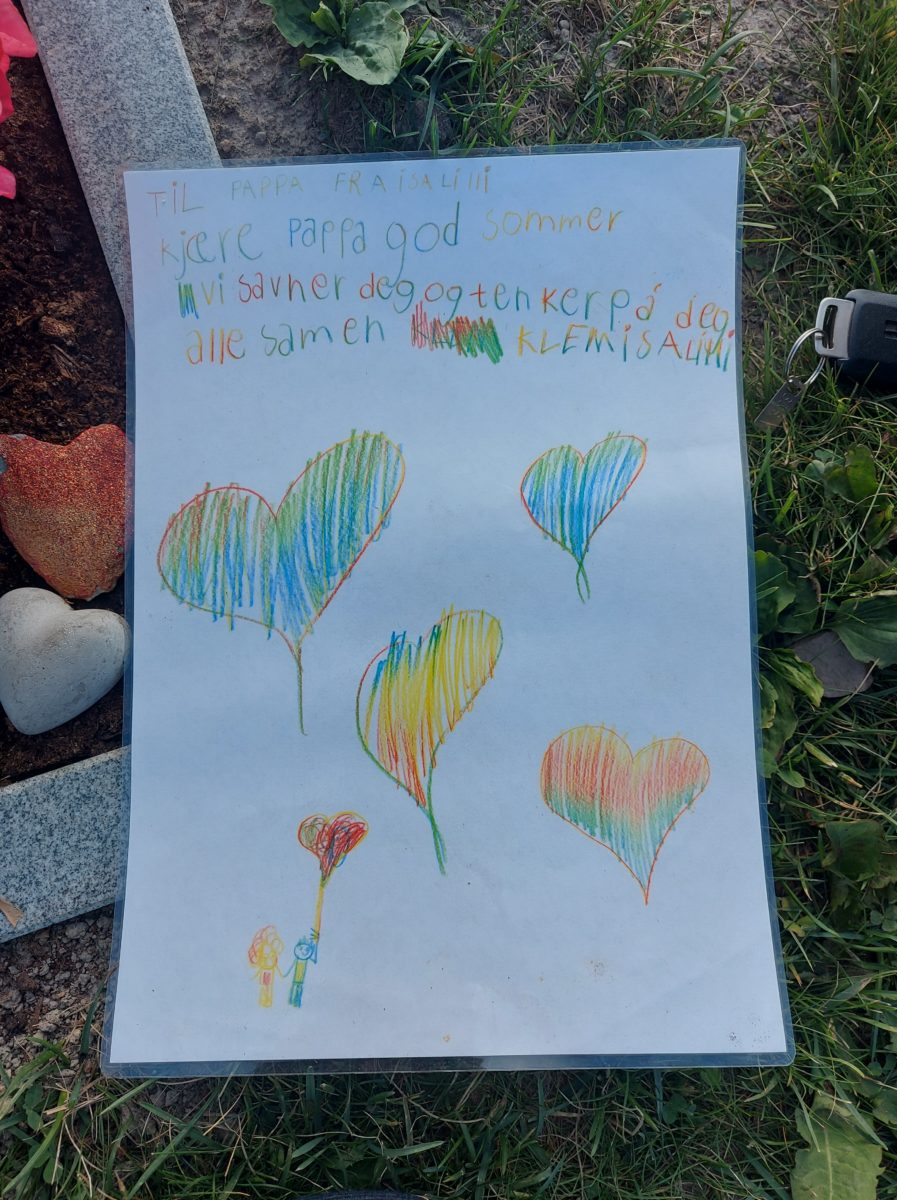 TiL PAPPA FRAiSALiIIi
kjære pappa god sommer
vi savner deg og tenker på deg
alle samen KLEMiSALiIIi